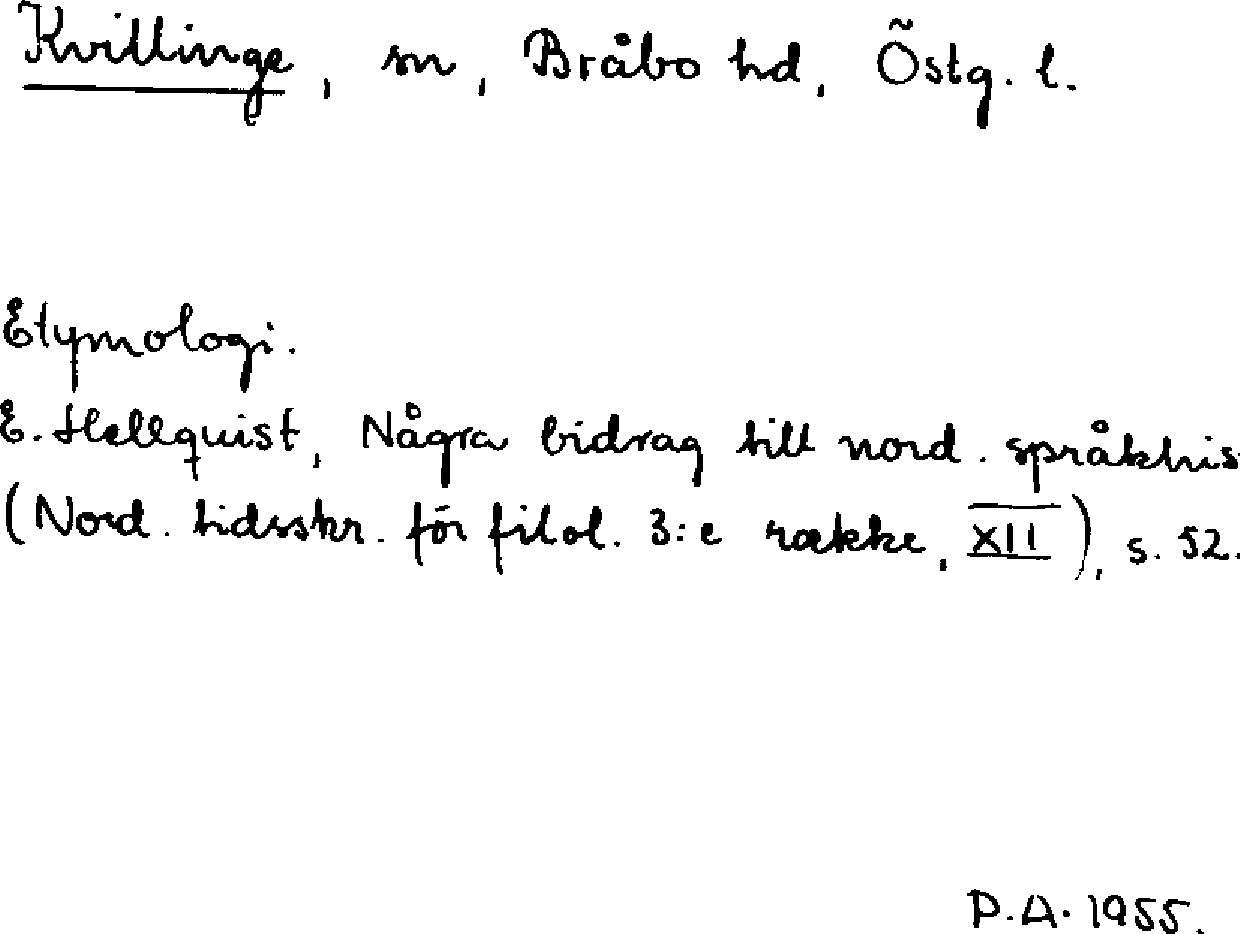 Kvillinge, sn, Bråbo hd, Östg. l.
Etymologi.
E. Hellquist, Några bidrag till nord. språkhis
(Nord. tidsskr. för filol. 3:e række, XII), s. 52.
P.A. 1955.